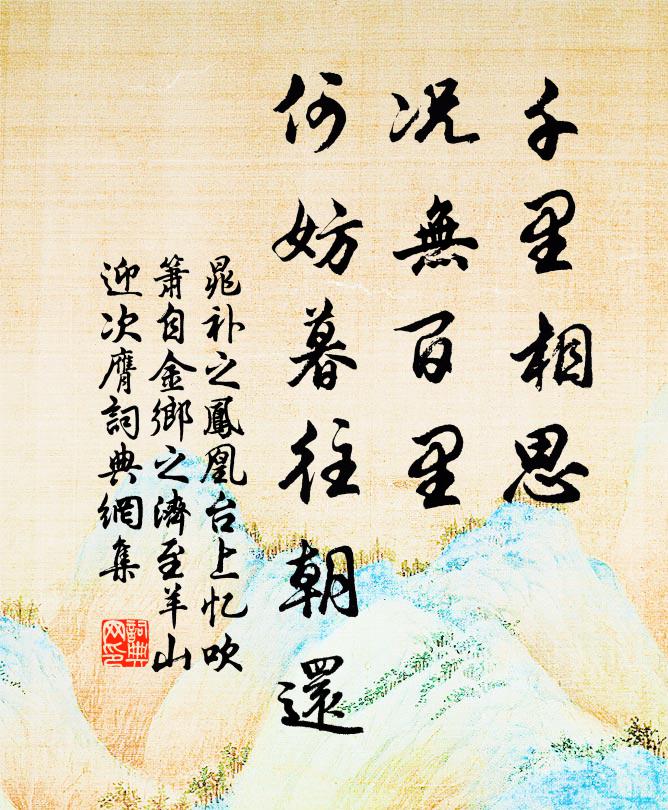 千里相思
况無百里
何妨暮往朝還
晁补之鳳凰台上忆吹
簫自金鄉之濟至羊山
迎次膺詞典網集
詞典網印